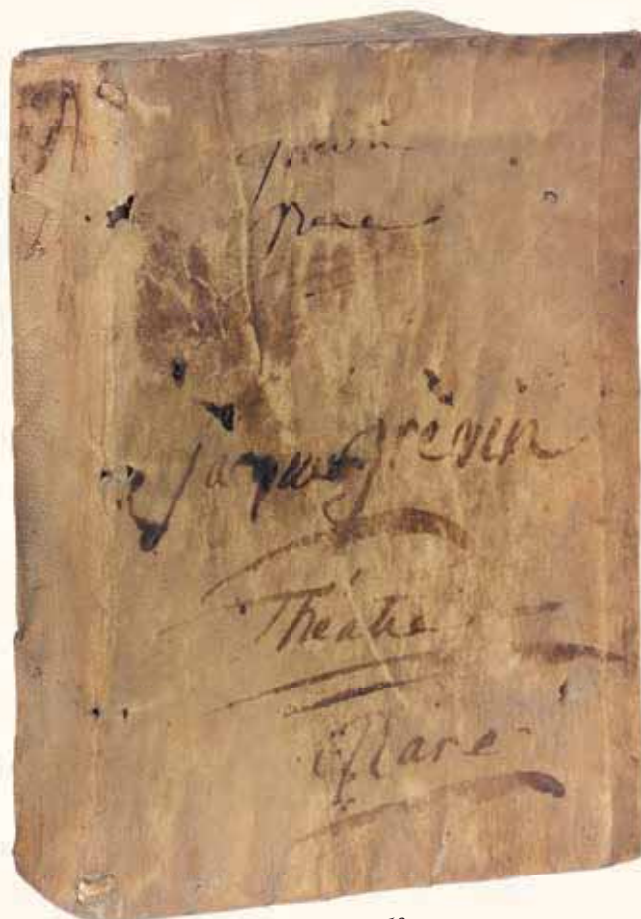 grevin
rare
jacques grévin
Théatre
Rare